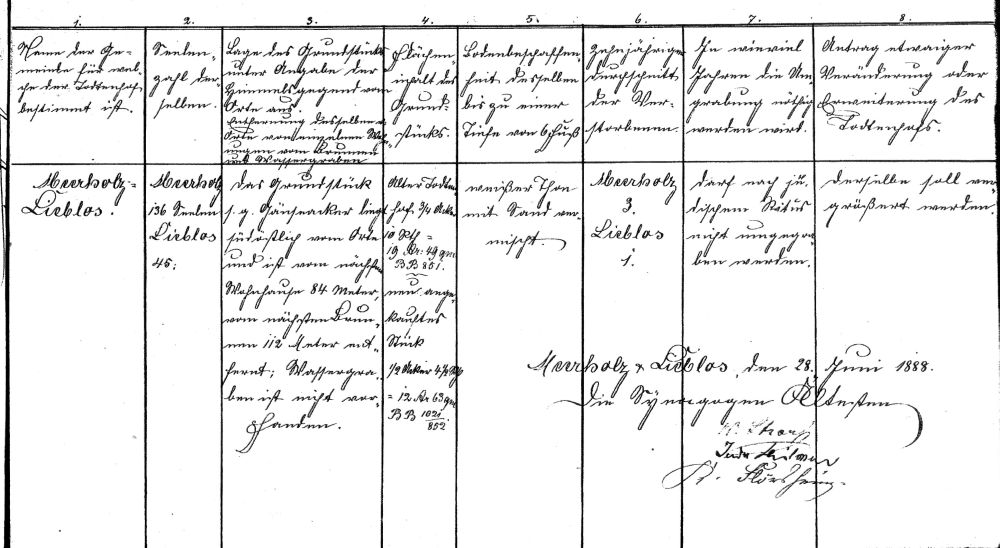 1.
2.
3.
4.
5.
6.
7.
8.
Name der Ge-
meinde für wel-
che der Todtenhof
bestimmt ist.
Seelen-
zahl der-
selben.
Lage des Grundstücks
unter Angabe der
Himmelsgegend vom
Orte aus
Entfernung desselben v.
Orte von einzelnen Woh-
nungen vom Brunnen
und Wassergraben
Flächen-
inhalt des
Grund-
stücks.
Bodenbeschaffen-
heit desselben
bis zu einer
Tiefe von 6 Fuß
Zehnjähriger
Durchschnitt
der Ver-
storbenen.
In wieviel
Jahren die Um
grabung nöthig
werden wird.
Antrag etwaiger
Veränderung oder
Erweiterung des
Todtenhofs.
Meerholz-
Lieblos.
Meerholz
136 Seelen
Lieblos
45;
das Grundstück
s. g. Gänseacker liegt
südöstlich vom Orte
und ist vom nächsten
Wohnhause 84 Meter,
vom nächsten Brun-
nen 112 Meter ent-
fernt; Wassergra-
ben ist nicht vor-
handen.
Alter Todten
hof 3/4 Acker
10 Rth =
19 Ar. 49 qm
BB 851.
neu ange-
kauftes
Stück
1/2 Acker 4 1/2 Rth
= 12 Ar 63 qm
BB 1021/852
weißer Thon
mit Sand ver-
mischt.
Meerholz
3.
Lieblos
1.
darf nach jü-
dischem Ritus
nicht umgegra-
ben werden.
derselbe soll ver-
größert werden.
Meerholz & Lieblos, den 28. Juni 1888.
Die Synagogen Ältesten
Strauß
Flörsheim